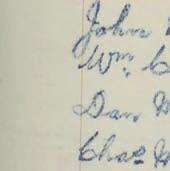 John
Wm. C
Dan
Chas